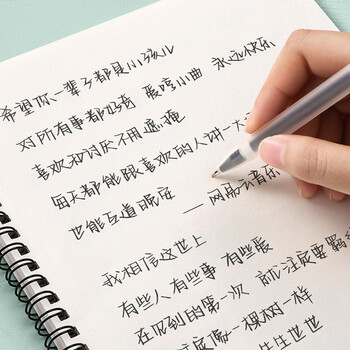 希望你一辈子都是小孩儿
对所有事都好奇 爱哼小曲 永远快乐
喜欢和讨厌不用遮掩
每天都能跟喜欢的人讲一大
也能互道晚安 ——网易云音乐
我相信这世上
有些人有些事 有些爱
在见到的第一次 就注定要羁
像一棵树一样
生生世世